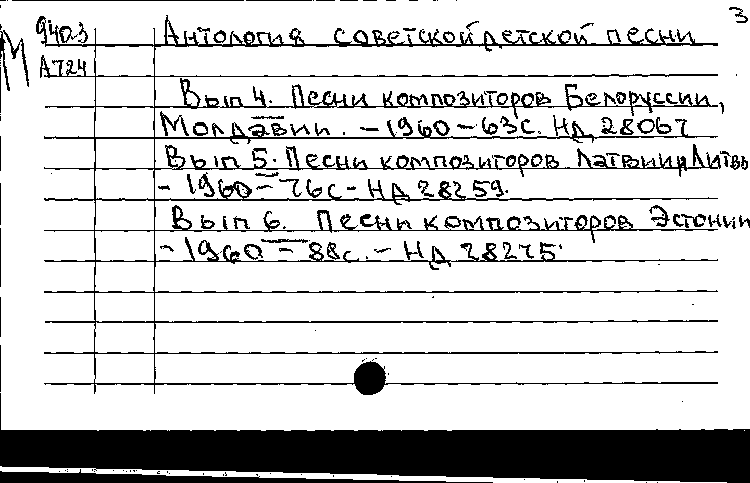 3
М 9403 Антология советской детской песни
А724
Вып 4. Песни композиторов Белоруссии,
Молдавии. – 1960 – 63с. НД 28067
Вып 5. Песни композиторов Латвии и Литвы
– 1960 – 76с – НД 28259.
Вып 6. Песни композиторов Эстонии
– 1960 – 88с. – НД 28275